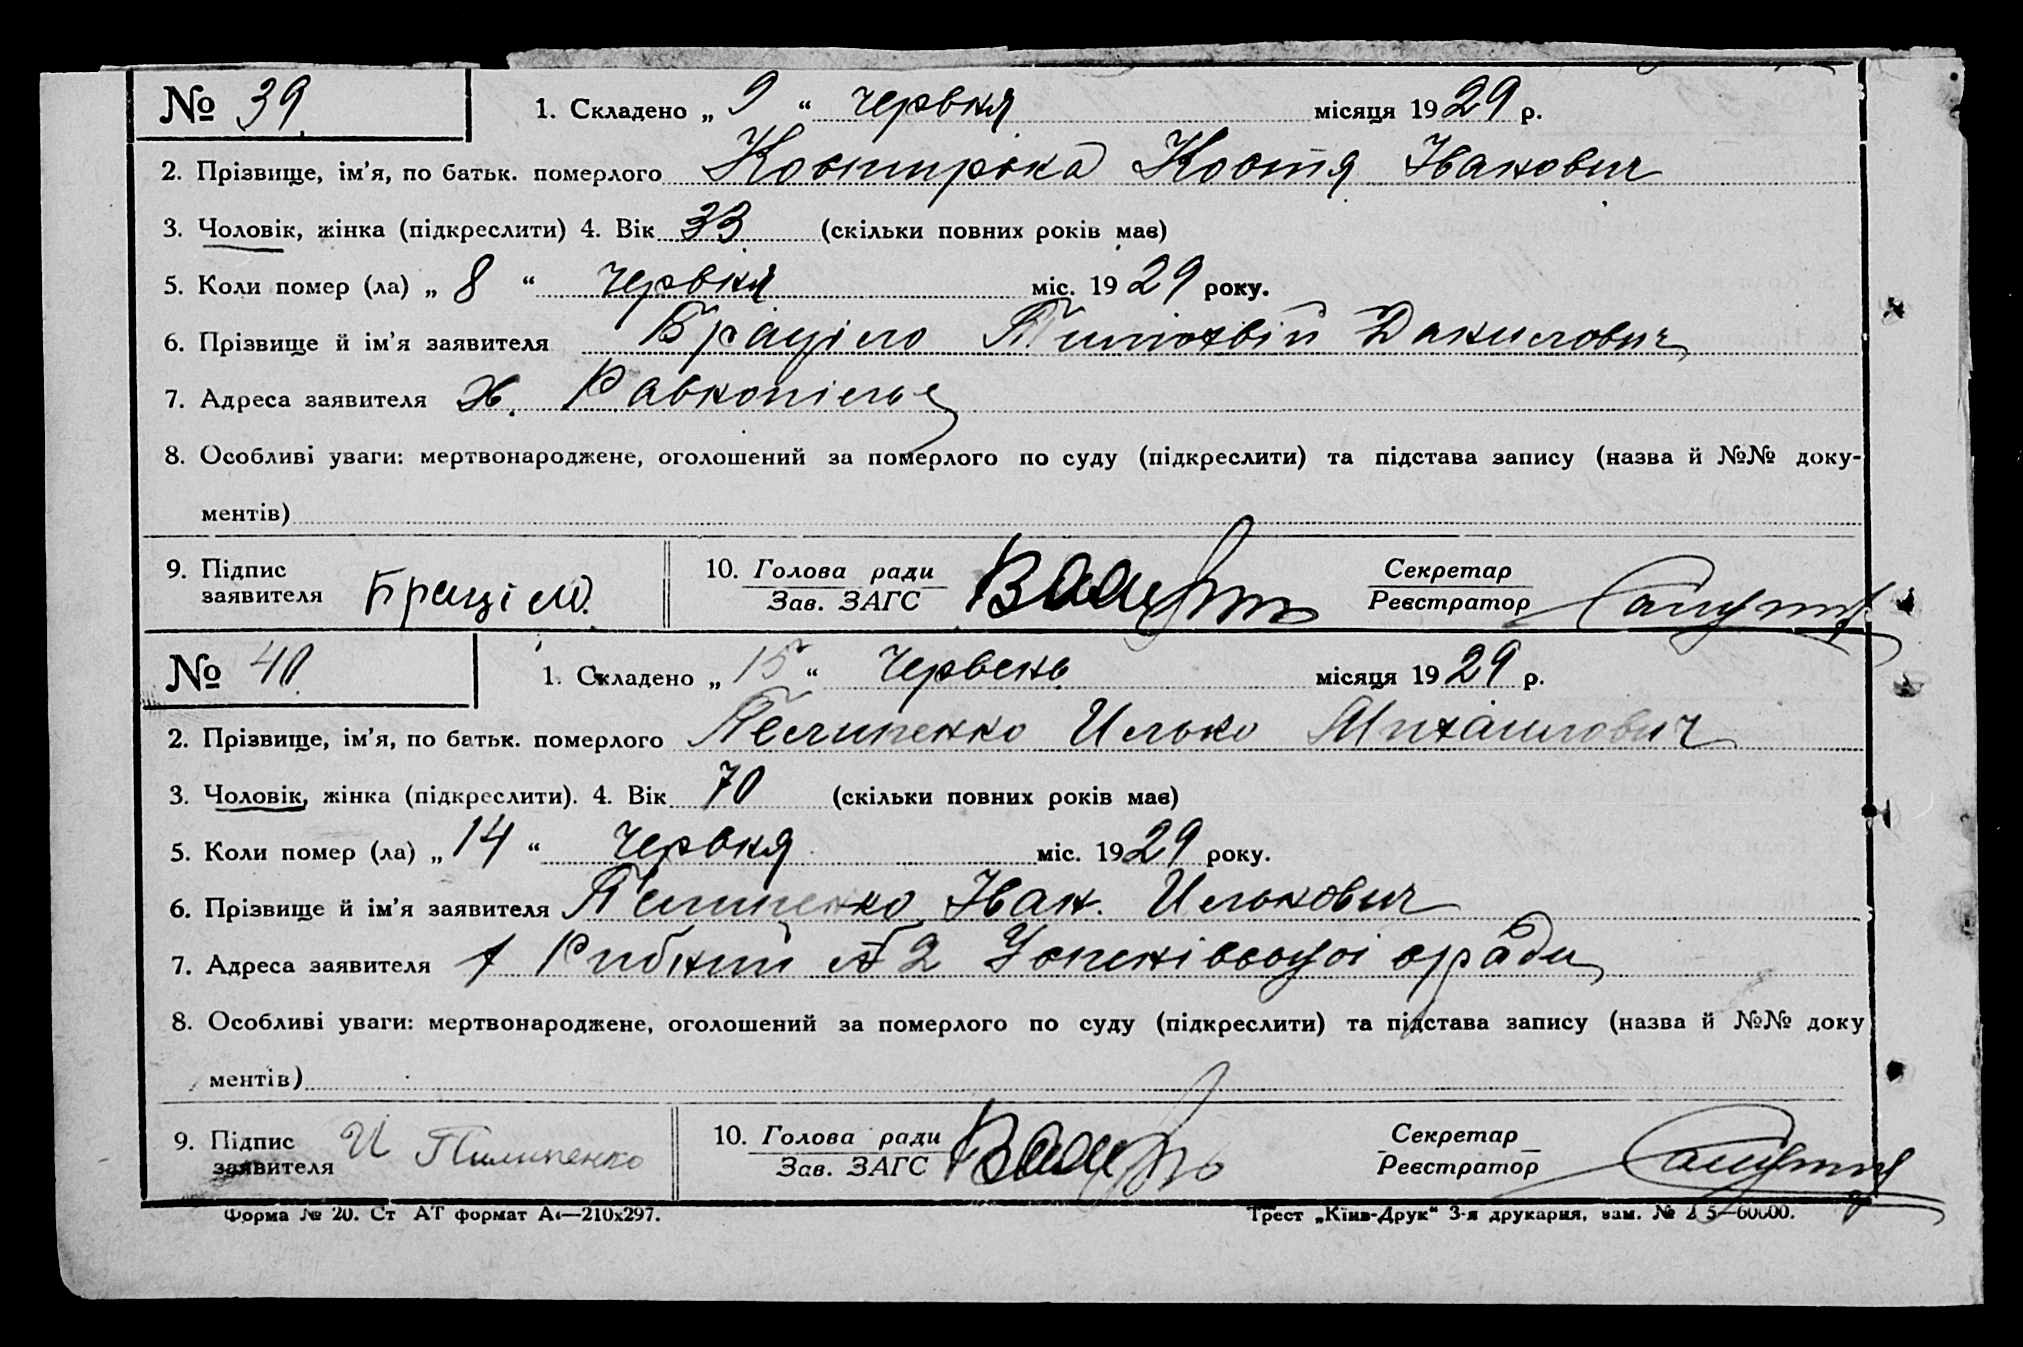 № 39 1. Складено „ 9 “ червня місяця 1929 р.
2. Прізвище, ім'я, по батьк. померлого Костирька Костя Іванович
3. Чоловік, жінка (підкреслити) 4. Вік 33 (скільки повних років має)
5. Коли помер (ла) „ 8 “ червня міс. 1929 року.
6. Прізвище й ім'я заявителя Браціло Тимохвій Данилович
7. Адреса заявителя х. Равнопілье
8. Особливі уваги: мертвонароджене, оголошений за померлого по суду (підкреслити) та підстава запису (назва й №№ доку-
ментів)
9. Підпис заявителя Браціло. 10. Голова ради Секретар
Зав. ЗАГС Реєстратор
№ 40 1. Складено „ 15 “ Червень місяця 1929 р.
2. Прізвище, ім'я, по батьк. померлого Пелипенко Илько Михаилович
3. Чоловік, жінка (підкреслити). 4. Вік 70 (скільки повних років має)
5. Коли помер (ла) „ 14 “ червня міс. 1929 року.
6. Прізвище й ім'я заявителя Пелипенко Іван. Илькович
7. Адреса заявителя Рибний № 2 Успенівської с/ради
8. Особливі уваги: мертвонароджене, оголошений за померлого по суду (підкреслити) та підстава запису (назва й №№ доку
ментів)
9. Підпис заявителя И Пилипенко 10. Голова ради Секретар
Зав. ЗАГС Реєстратор
Форма № 20. Ст АТ формат А4—210х297. Трест „Київ-Друк“ 3-я друкарня, зам. №